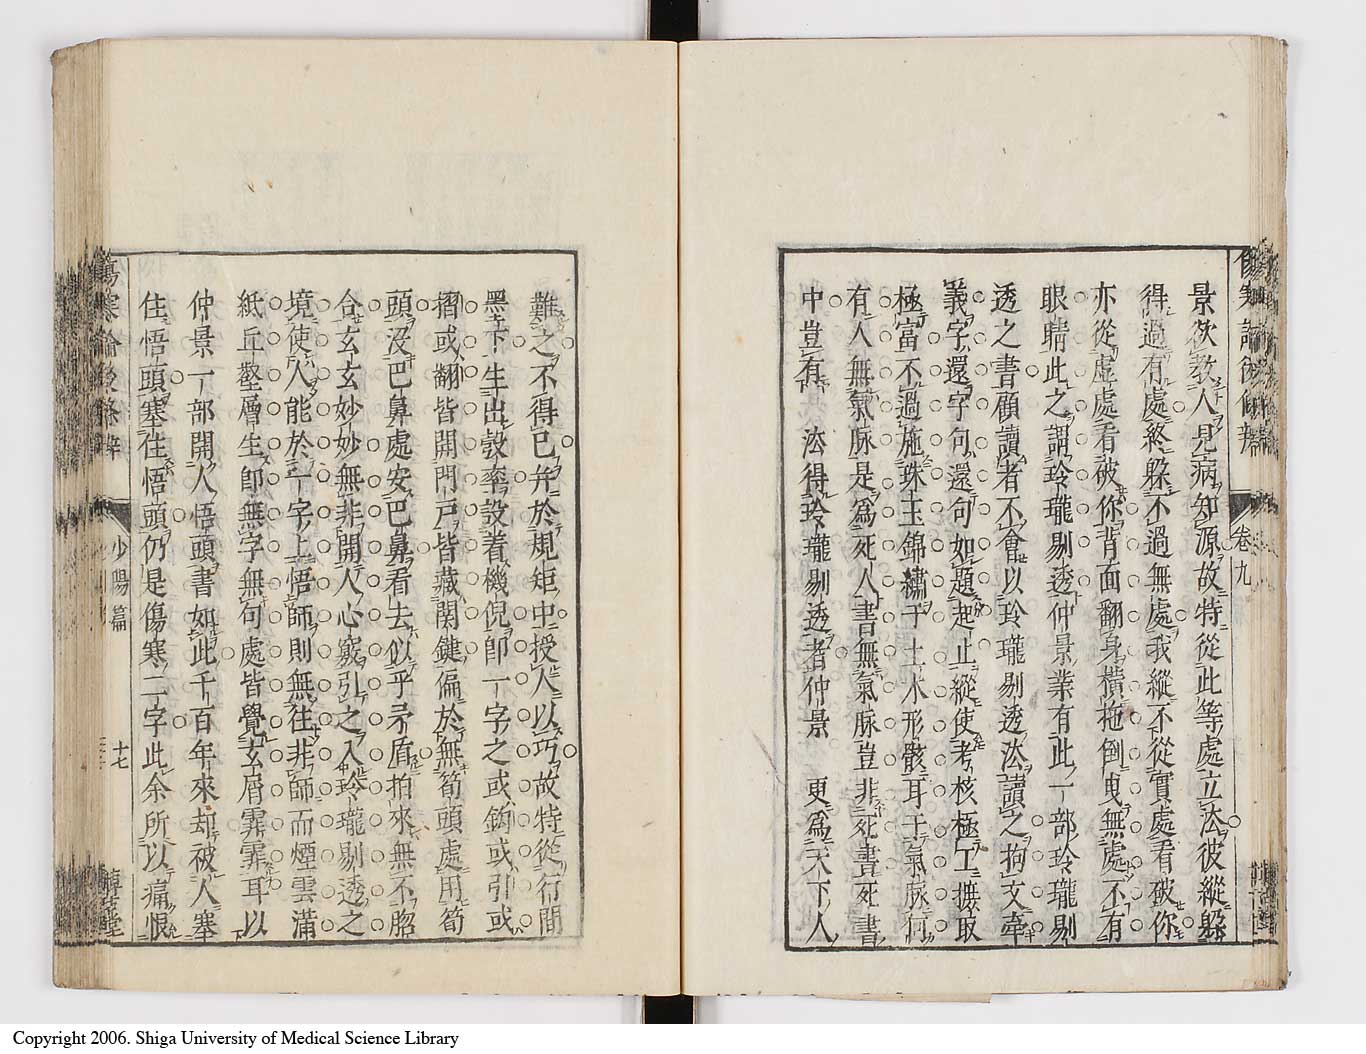 景欲教人見病知源故特從此等處立法彼縱躱
得過有處終躱不過無處我縱不從實處看破你
亦從虛處看破你背面翻身橫拖倒曳無處不有
眼睛此之謂玲瓏剔透仲景業有此一部玲瓏剔
透之書顧讀者不會以玲瓏剔透法讀之拘文牽
義字還字句還句如題起止縱使考核極工摭取
極富不過施珠玉錦繡于土木形骸耳于氣脉何
有人無氣脉是為死人書無氣脉豈非死書死書
中豈有 法得玲瓏剔透者仲景 更為天下人
卷九
難之不得已并於規矩中授人以巧故特從行間
墨下生出彀率設着機倪即一字之或鉤或引或
摺或翻皆開門戶皆藏関鍵偏於無筍頭處用筍
頭沒巴鼻處安巴鼻看去似乎矛盾拍來無不脗
合玄玄妙妙無非開人心竅引之入玲瓏剔透之
境使人能於一字上悟師則無徃非師而煙雲滿
紙丘壑層生即無字無句處皆覺玄屑霏霏耳以
仲景一部開人悟頭書如此千百年來却被人塞
住悟頭塞住悟頭仍是傷寒二字此余所以痛恨
傷寒論後條辨
少陽篇
十七